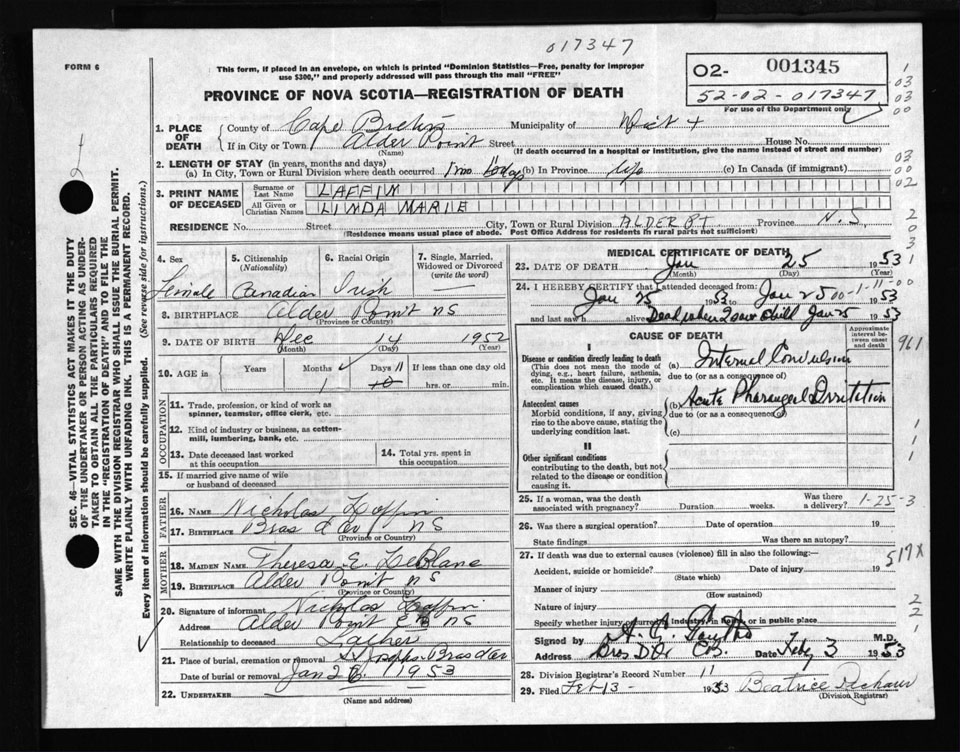 017347
FORM 6
This form, if placed in an envelope, on which is printed "Dominion Statistics—Free, penalty for improper
use $300," and properly addressed will pass through the mail "FREE"
O2- 001345
52-02-017347
For use of the Department only
PROVINCE OF NOVA SCOTIA—REGISTRATION OF DEATH
1. PLACE OF DEATH { County of Cape Breton Municipality of
If in City or Town Alder Point Street House No.
(Name) (If death occurred in a hospital or institution, give the name instead of street and number)
2. LENGTH OF STAY (in years, months and days)
(a) In City, Town or Rural Division where death occurred 1 mo (b) In Province life (c) In Canada (if immigrant)
3. PRINT NAME OF DECEASED { Surname or Last Name LAFFIN
All Given or Christian Names LINDA MARIE
RESIDENCE No. Street City, Town or Rural Division ALDER PT Province N.S.
(Residence means usual place of abode. Post Office Address for residents in rural parts not sufficient)
4. Sex Female
5. Citizenship (Nationality) Canadian
6. Racial Origin Irish
7. Single, Married, Widowed or Divorced (write the word) —
8. BIRTHPLACE Alder Point NS
(Province or Country)
9. DATE OF BIRTH Dec 14 1952
(Month) (Day) (Year)
10. AGE in { Years Months Days If less than one day old
1 11 hrs. or min.
OCCUPATION
11. Trade, profession, or kind of work as spinner, teamster, office clerk, etc.
12. Kind of industry or business, as cotton-mill, lumbering, bank, etc.
13. Date deceased last worked at this occupation
14. Total yrs. spent in this occupation
15. If married give name of wife or husband of deceased
FATHER
16. NAME Nicholas Laffin
17. BIRTHPLACE Bras d'or NS
(Province or Country)
MOTHER
18. MAIDEN NAME Theresa E. LeBlanc
19. BIRTHPLACE Alder Point NS
(Province or Country)
20. Signature of informant Nicholas Laffin
Address Alder Point CB NS
Relationship to deceased Father
21. Place of burial, cremation or removal St Josephs Bras dor
Date of burial or removal Jan 1953
22. UNDERTAKER
(Name and Address)
MEDICAL CERTIFICATE OF DEATH
23. DATE OF DEATH Jan 25 1953
(Month) (Day) (Year)
24. I HEREBY CERTIFY that I attended deceased from:
Jan 25 1953 to Jan 25 1953
and last saw h alive Dead when I saw child Jan 25 1953
CAUSE OF DEATH
Approximate interval between onset and death
I
Disease or condition directly leading to death
(This does not mean the mode of dying, e.g., heart failure, asthenia, etc. It means the disease, injury, or complication which caused death.)
(a) Internal Convulsion
due to (or as a consequence of)
Antecedent causes
Morbid conditions, if any, giving rise to the above cause, stating the underlying condition last.
(b) Acute Pharengeal Irritation
due to (or as a consequence of)
(c)
II
Other significant conditions
contributing to the death, but not related to the disease or condition causing it.
25. If a woman, was the death associated with pregnancy? Duration weeks. Was there a delivery?
1-25-3
26. Was there a surgical operation? Date of operation 19
State findings Was there an autopsy?
27. If death was due to external causes (violence) fill in also the following:—
Accident, suicide or homicide? Date of injury 19
(State which)
Manner of injury
(How sustained)
Nature of injury
Specify whether injury occurred in Industry, in home, or in public place
Signed by M.D.
Address Bras D'Or C.B. Date Feby 3 1953
28. Division Registrar's Record Number 11
29. Filed Feb 3 - 1953 Beatrice
(Division Registrar)
961
517X
SEC. 46- VITAL STATISTICS ACT MAKES IT THE DUTY
OF THE UNDERTAKER OR PERSON ACTING AS UNDER-
TAKER TO OBTAIN ALL THE PARTICULARS REQUIRED
IN THE "REGISTRATION OF DEATH" AND TO FILE THE
SAME WITH THE DIVISION REGISTRAR WHO SHALL ISSUE THE BURIAL PERMIT.
WRITE PLAINLY WITH UNFADING INK. THIS IS A PERMANENT RECORD.
Every item of information should be carefully supplied. (See reverse side for instructions.)